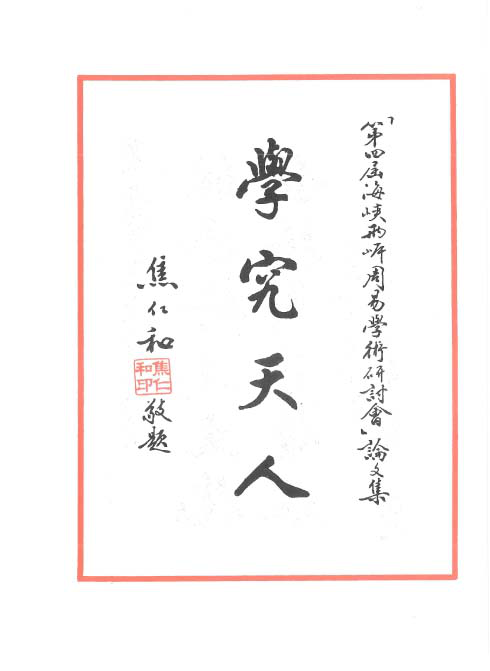 「第四屆海峽兩岸周易學術研討會」論文集
學究天人
焦仁和敬題
焦仁和印